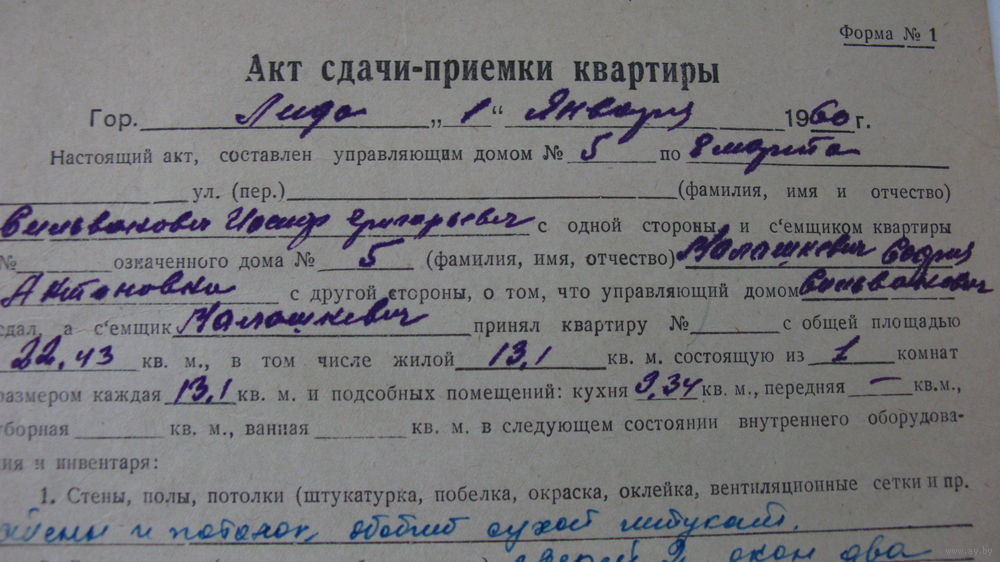 Форма № 1
Акт сдачи-приемки квартиры
Гор. Лида „ 1 " Января 1960 г.
Настоящий акт, составлен управляющим домом № 5 по 8 марта
ул. (пер.) (фамилия, имя и отчество)
Сильванович Иосиф Григорьевич с одной стороны и с'емщиком квартиры
№ означенного дома № 5 (фамилия, имя, отчество) Малашкевич София
с другой стороны, о том, что управляющий домом Сильванович
сдал, а с'емщик Малашкевич принял квартиру № с общей площадью
22,43 кв. м., в том числе жилой 13,1 кв. м. состоящую из 1 комнат
размером каждая 13,1 кв. м. и подсобных помещений: кухня 9,34 кв. м., передняя — кв.м.,
уборная кв. м., ванная кв. м. в следующем состоянии внутреннего оборудова-
ния и инвентаря:
1. Стены, полы, потолки (штукатурка, побелка, окраска, оклейка, вентиляционные сетки и пр.
стены и потолок обобит сухой
дверей 2, окон два
www.ay.by